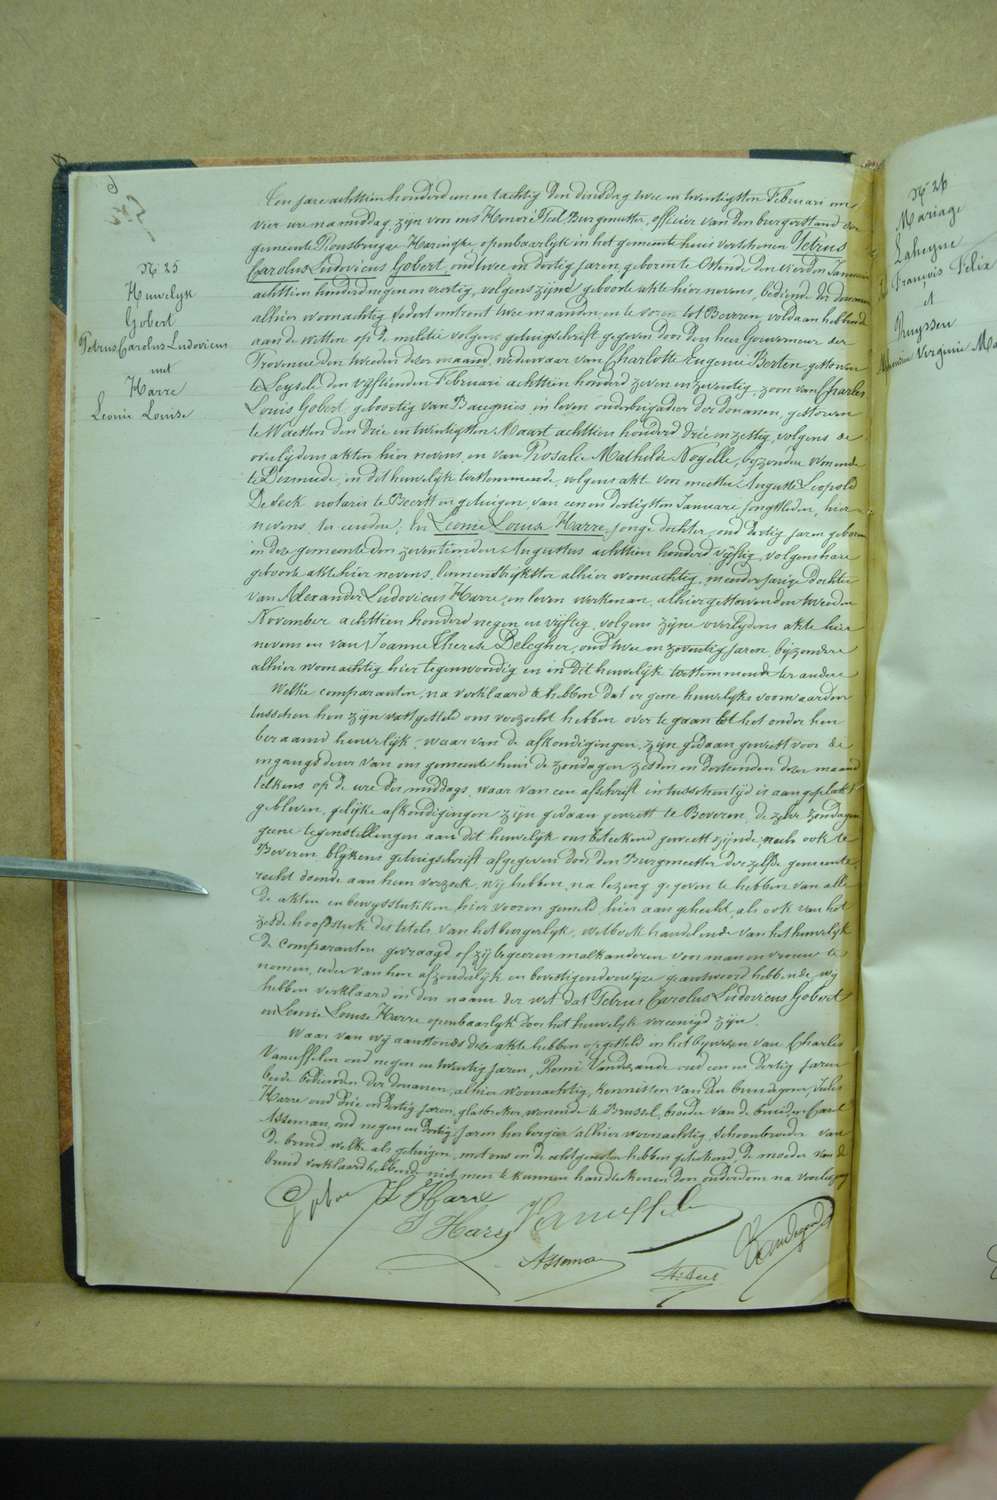 N. 25
Huwelyk
Gobert
Petrus Carolus Ludovicus
met
Harre
Leonie Louise
Ten jare achttien honderd een en tachtig den dinsdag twee en twintigsten Februari om
vier ure namiddag, zyn voor ons Honoré Teel, Burgmeester, officier van den burgerstand der
gemeente Rousbrugge Haringhe openbaarlyk in het gemeentehuis verschenen Petrus
Carolus Ludovicus Gobert, oud twee en dertig jaren, geboren te Ostende den vierden Januari
achttien honderd negen en veertig, volgens zyne geboorte akte hier nevens, bediende der douanen
alhier woonachtig sedert omtrent twee maanden en te voren tot Beveren, voldaan hebbende
aan de wetten op de militie volgens getuigschrift gegeven door den heer Gouverneur der
Provincie den tweeden dezer maand, weduwaar van Charlotte Eugenie Berten, gestorven
te Leysele den vyftienden Februari achttien honderd zeven en zeventig, zoon van Charles
Louis Gobert, geboortig van Baugnies, in leven onderbrigadier der douanen, gestorven
te Watten den drie en twintigsten Maart achttien honderd drie en zestig, volgens de
overlydens akten hier nevens en van Rosalie Mathilde Noyelle, byzondere wonende
te Dixmude, in dit huwelyk toestemmende, volgens akt voor meester Auguste Leopold
Dedeck notaris te Beerst en getuigen, van een en dertigsten Januari jongstleden, hier
nevens ter eendre; En Leonie Louise Harre, jonge dochter, oud dertig jaren geboren
in deze gemeente den zeventienden Augustus achttien honderd vyftig, volgens hare
geboorte akte hier nevens, linnenstrykster alhier woonachtig, meerderjarige dochter
van Alexander Ludovicus Harre, in leven werkman, alhier gestorven den tweeden
November achttien honderd negen en vyftig, volgens zyne overlydens akte hier
nevens en van Joanna Therese Deleghe, oud twee en zeventig jaren, byzondere
alhier woonachtig hier tegenwoordig en in dit huwelyk toestemmende ter andere
Welke comparanten, na verklaard te hebben dat er geene huwelyks voorwaarden
tusschen hen zyn vastgesteld ons verzocht hebben over te gaan tot het onder hen
beraamd huwelyk, waar van de afkondigingen zyn gedaan geweest voor de
ingangsdeur van ons gemeente huis de zondagen zesden en dertienden dezer maand
telkens op de ure des middags, waar van een afschrift in tusschentyd is aangeplakt
gebleven, gelyke afkondigingen zyn gedaan geweest te Beveren, de zelve zondagen
geene tegenstellingen aan dit huwelyk ons beteekend geweest zynde, noch ook te
Beveren blykens getuigschrift afgegeven door den Burgmeester der zelfde gemeente,
recht doende aan hun verzoek, wy hebben, na lezing gegeven te hebben van alle
de akten en bewysstukken hier vooren gemeld, hier aan gehecht, als ook van het
zesde hoofdstuk des titels van het burgerlyk wetboek handelende van het huwelyk
de comparanten gevraagd of zy begeeren malkanderen voor man en vrouw te
nemen, ieder van hen afzonderlyk en bevestigender wyze geantwoord hebbende, wy
hebben verklaard in den naam der wet dat Petrus Carolus Ludovicus Gobert
en Leonie Louise Harre openbaarlyk door het huwelyk vereenigd zyn.
Waar van wy aanstonds deze akte hebben opgesteld in het bywezen van Charles
Vanuffelen oud negen en twintig jaren, Remi Vandezande oud een en dertig jaren
beide bedienden der douanen, alhier woonachtig, kennissen van den bruidegom, Jules
Harre oud drie en dertig jaren, glasbreker, wonende te Brussel, broeder van de bruid en Carel
Asseman, oud negen en dertig jaren herbergier, alhier woonachtig, schoonbroeder van
de bruid welke als getuigen, met ons en de echtgenoten hebben geteekend, de moeder van de
bruid verklaard hebbende niet meer te kunnen handteekenen door ouderdom na voorlezing
Gobert L Harre
J Harre Vanuffelen
Asseman H. Teel
N. 26
Mariage
Laheyne
François Felix
et
Ruyssen
Virginie